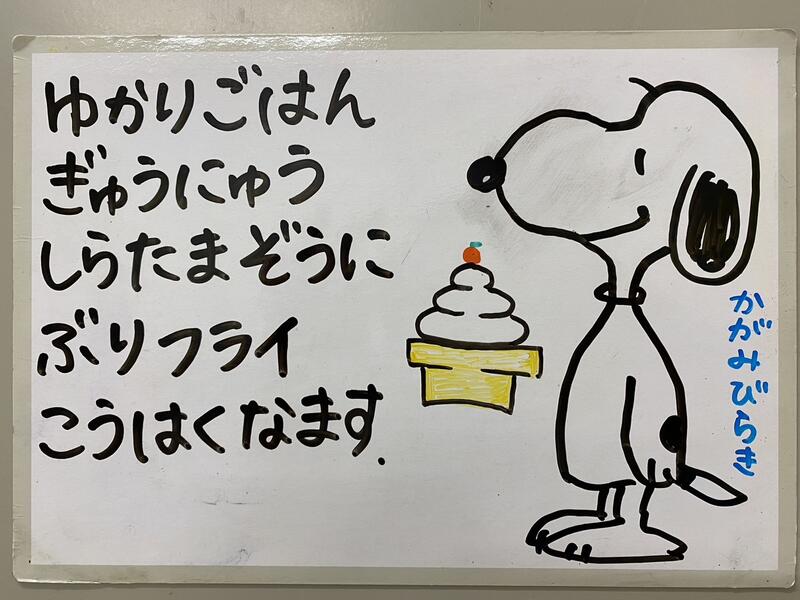 ゆかりごはん
ぎゅうにゅう
しらたまぞうに
ぶりフライ
こうはくなます.
かがみびらき